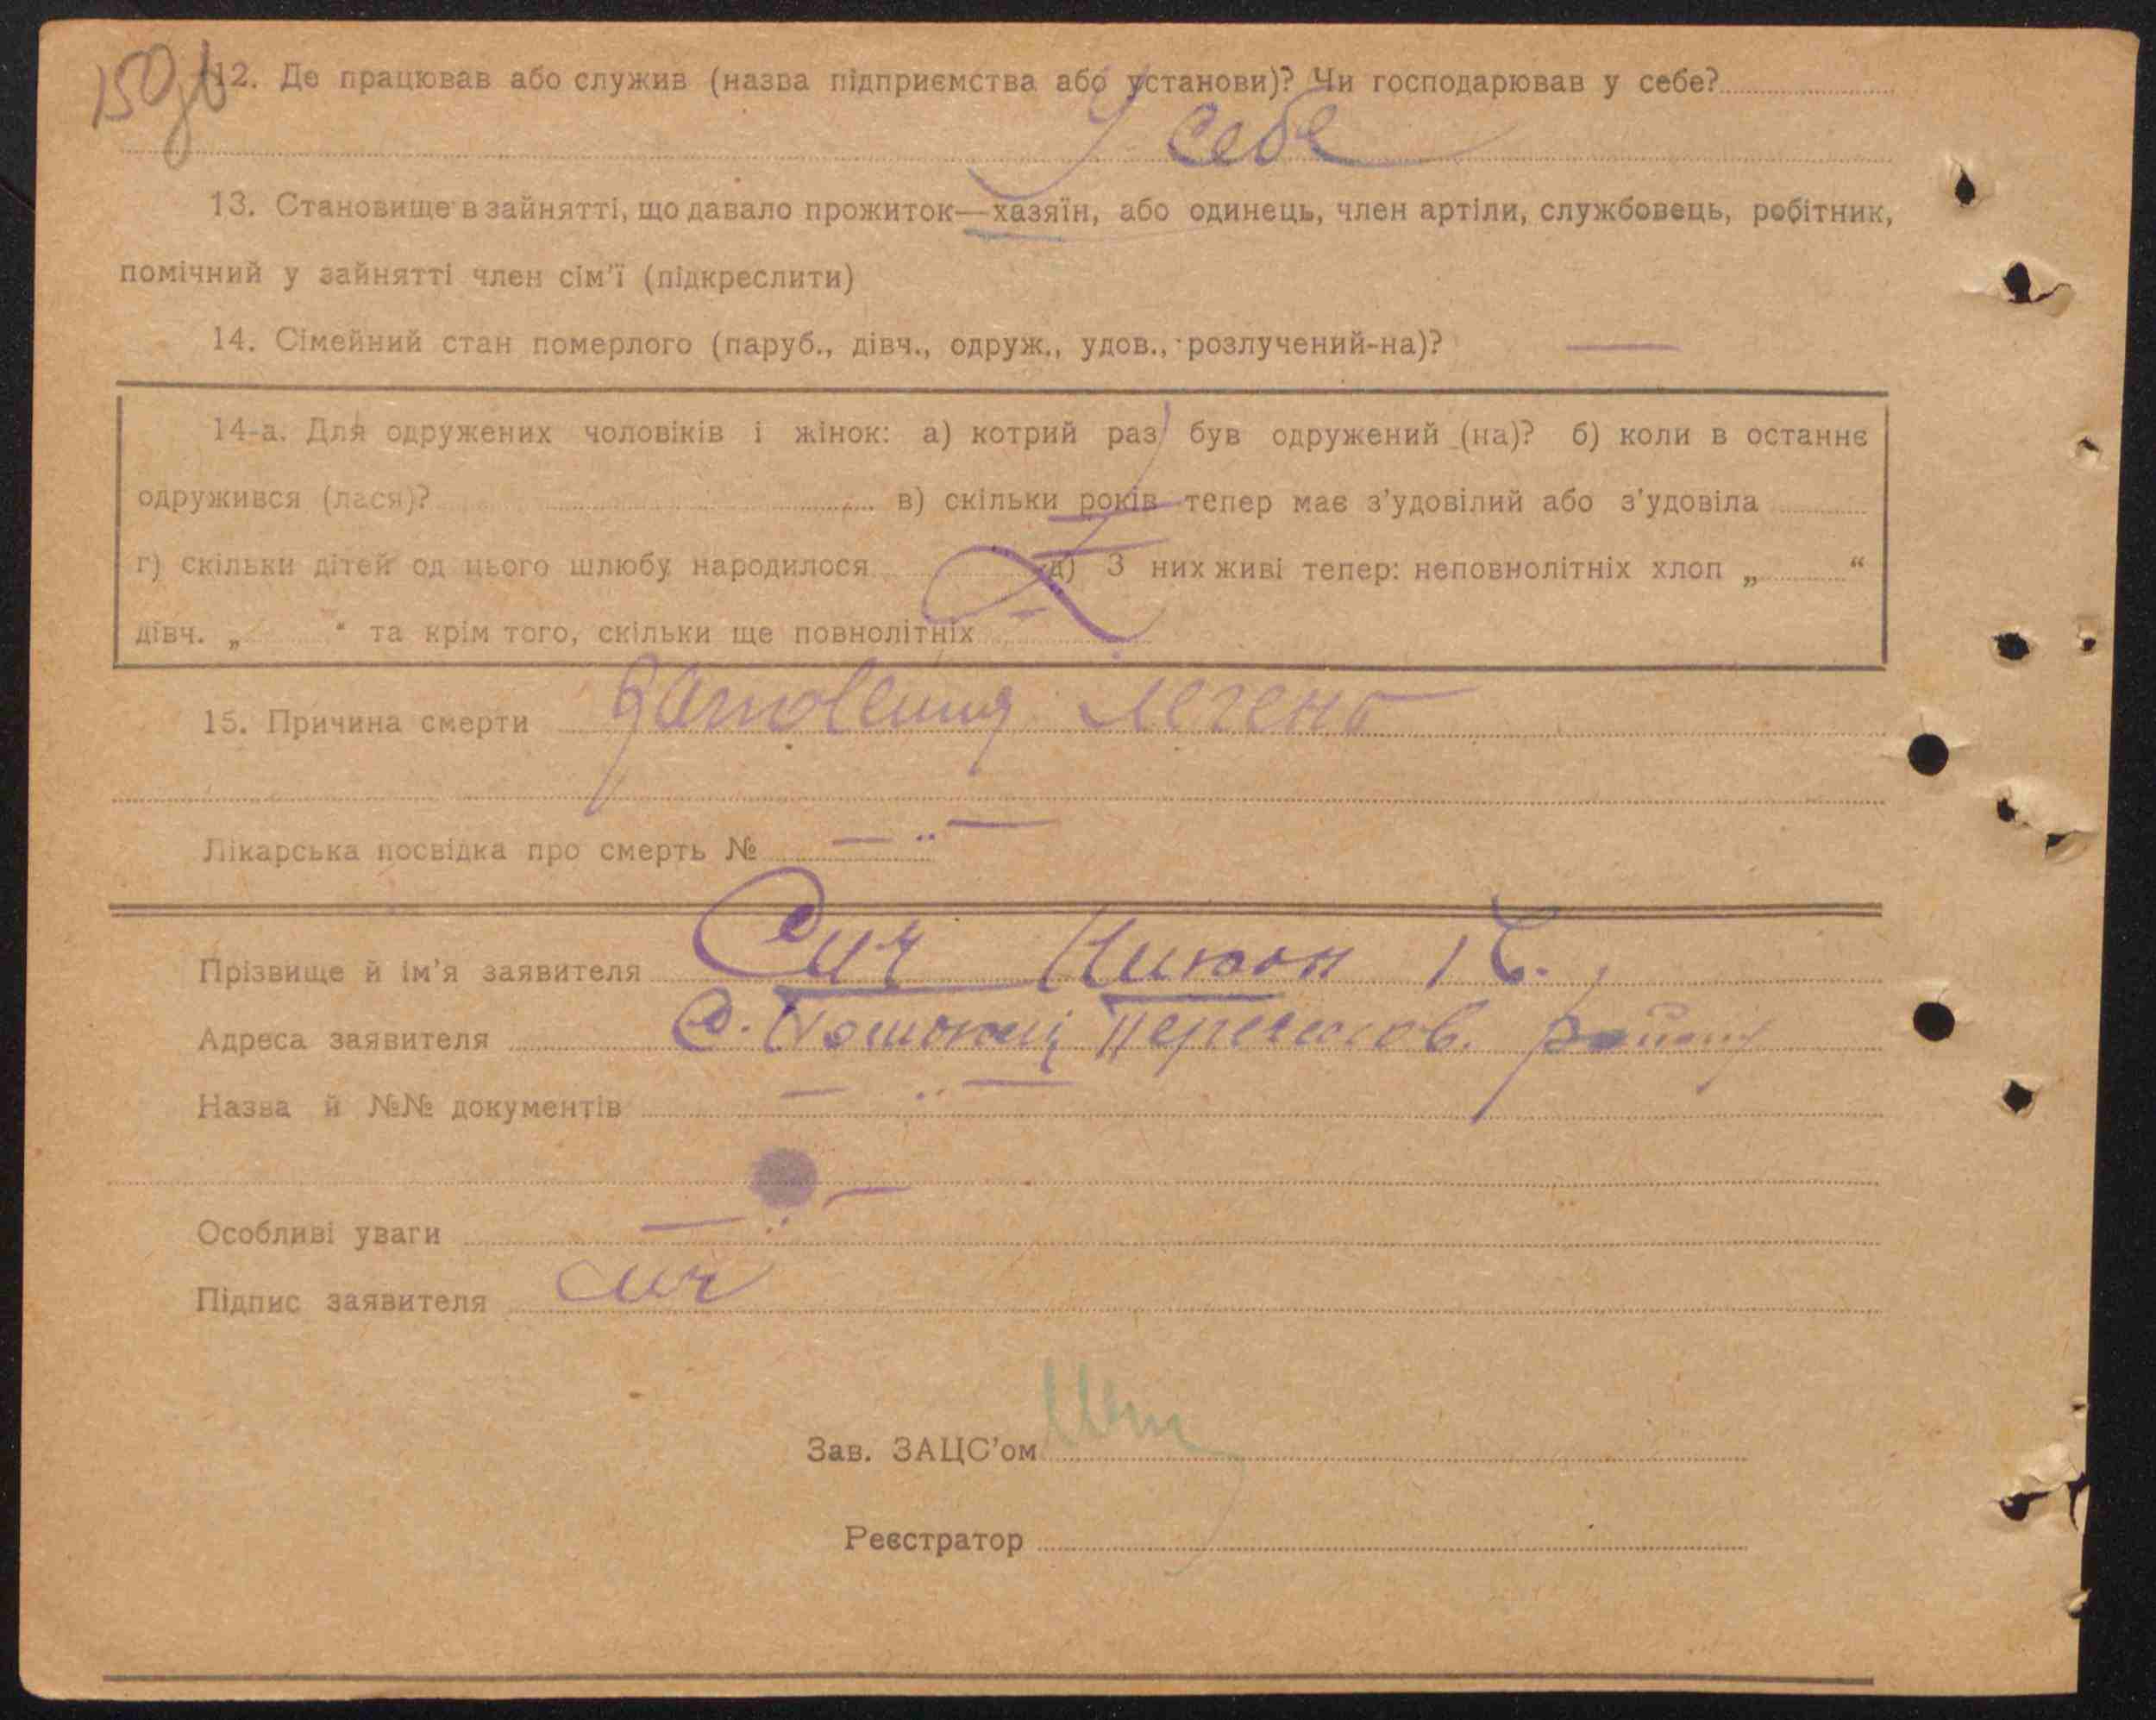 150зв
12. Де працював або служив (назва підприємства або установи)? Чи господарював у себе?
У себе
13. Становище в зайнятті, що давало прожиток—хазяїн, або одинець, член артіли, службовець, робітник,
помічний у зайнятті член сім'ї (підкреслити)
14. Сімейний стан померлого (паруб., дівч., одруж., удов., розлучений-на)? —
14-а. Для одружених чоловіків і жінок: а) котрий раз був одружений (на)? б) коли в останнє
одружився (лася)? в) скільки років тепер має з'удовілий або з'удовіла
г) скільки дітей од цього шлюбу народилося д) З них живі тепер: неповнолітніх хлоп „ “
дівч. „ “ та крім того, скільки ще повнолітніх
15. Причина смерти легень
Лікарська посвідка про смерть № — „ —
Прізвище й ім'я заявителя Сич Никон
Адреса заявителя С. Пошокиї району
Назва й №№ документів — „ —
Особливі уваги — „ —
Підпис заявителя Сич
Зав. ЗАЦС'ом
Реєстратор